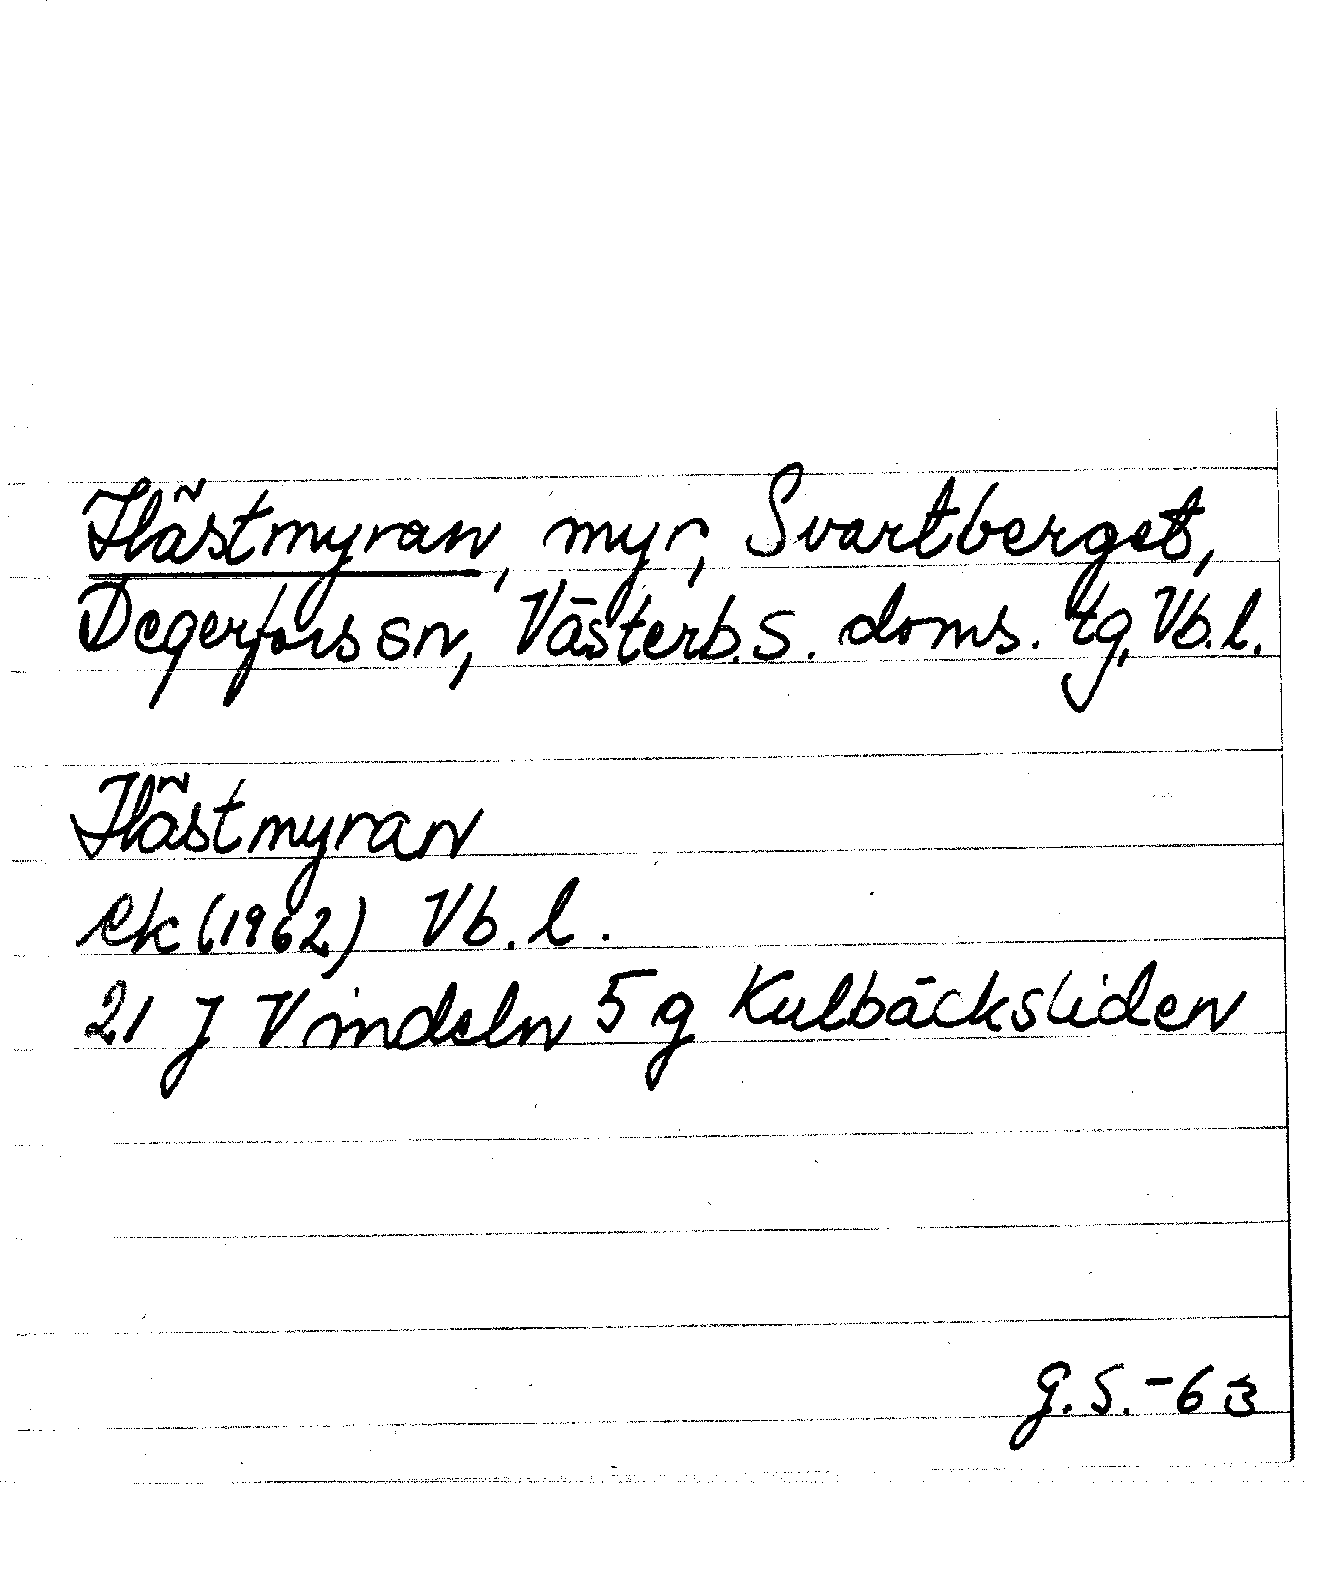 Hästmyran, myr, Svartberget,
Degerfors sn, Västerb. s. doms. tg, Vb. l.
Hästmyran
ek (1962) Vb. l.
21 J Vindeln 5 g Kulbäcksliden
g. S. -63